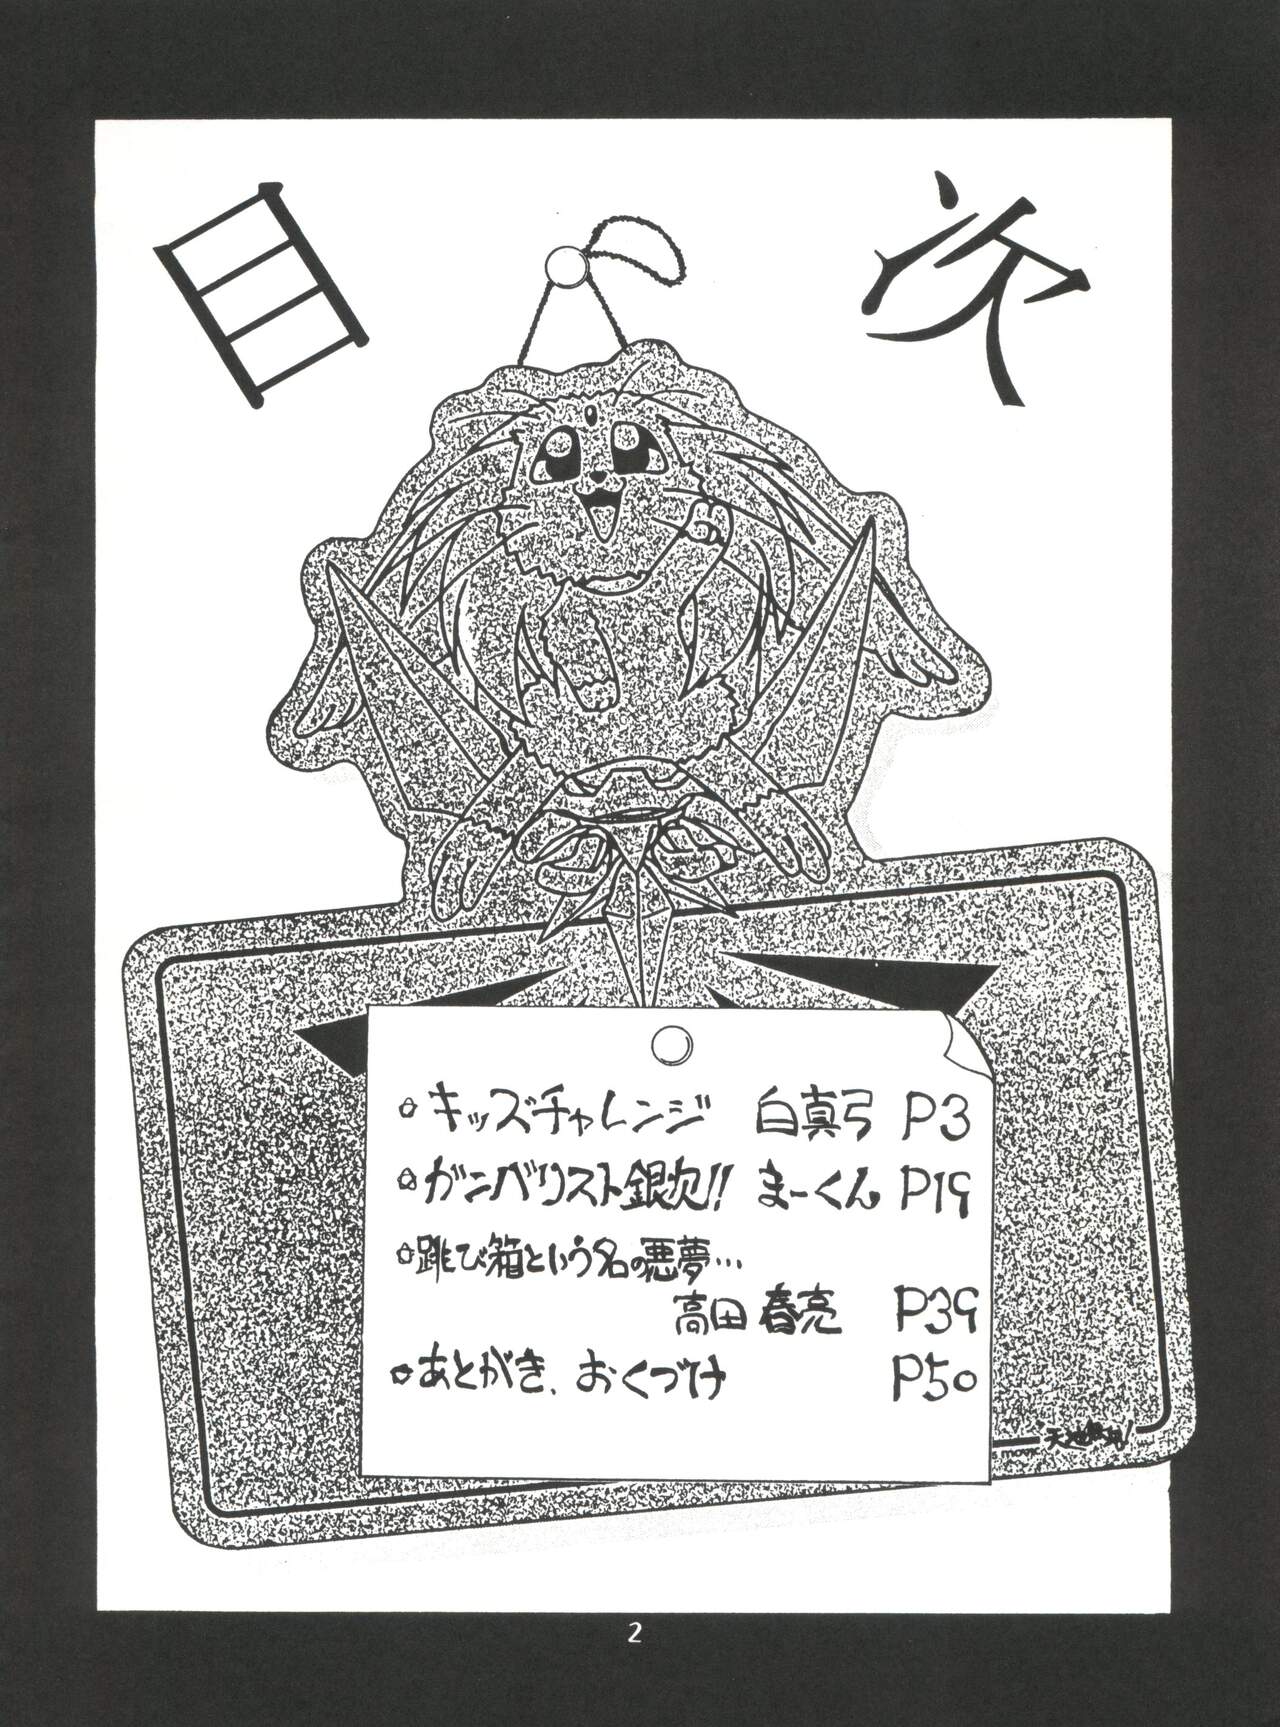 目次
キッズチャレンジ 白真弓 P3
ガンバリスト銀次!! まーくん P19
跳び箱という名の悪夢…
高田春亮 P39
あとがき、おくづけ P50
天地無用!
2